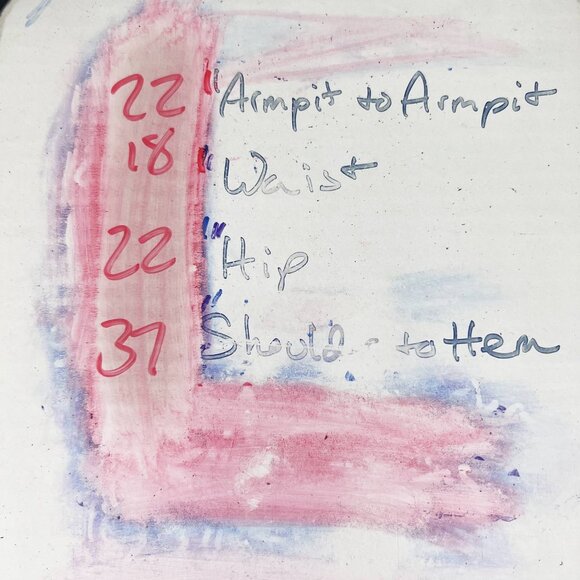 22" Armpit to Armpit
18" Waist
22" Hip
37" Should - to Hem